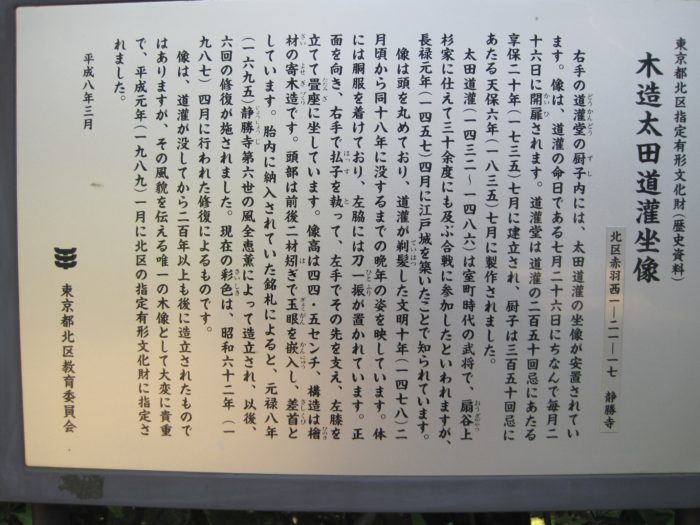 東京都北区指定有形文化財(歴史資料)
木造太田道灌坐像
北区赤羽西一―二一―一七　静勝寺
右手の道灌堂の厨子内には、太田道灌の坐像が安置されてい
ます。像は、道灌の命日である七月二十六日にちなんで毎月二
十六日に開扉されます。道灌堂は道灌の二百五十回忌にあたる
享保二十年(一七三五)七月に建立され、厨子は三百五十回忌に
あたる天保六年(一八三五)七月に製作されました。
太田道灌(一四三二~一四八六)は室町時代の武将で、扇谷上
杉家に仕えて三十余度にも及ぶ合戦に参加したといわれますが、
長禄元年(一四五七)四月に江戸城を築いたことで知られています。
像は頭を丸めており、道灌が剃髪した文明十年(一四七八)二
月頃から同十八年に没するまでの晩年の姿を映しています。体
には胴服を着けており、左脇には刀一振が置かれています。正
面を向き、右手で払子を執って、左手でその先を支え、左膝を
立てて畳座に坐しています。像高は四四・五センチ、構造は檜
材の寄木造です。頭部は前後二材矧ぎで玉眼を嵌入し、差首と
しています。胎内に納入されていた銘札によると、元禄八年
(一六九五)静勝寺第六世の風全恵薫によって造立され、以後、
六回の修復が施されました。現在の彩色は、昭和六十二年(一
九八七)四月に行われた修復によるものです。
像は、道灌が没してから二百年以上も後に造立されたもので
はありますが、その風貌を伝える唯一の木像として大変に貴重
で、平成元年(一九八九)一月に北区の指定有形文化財に指定さ
れました。
平成八年三月
東京都北区教育委員会